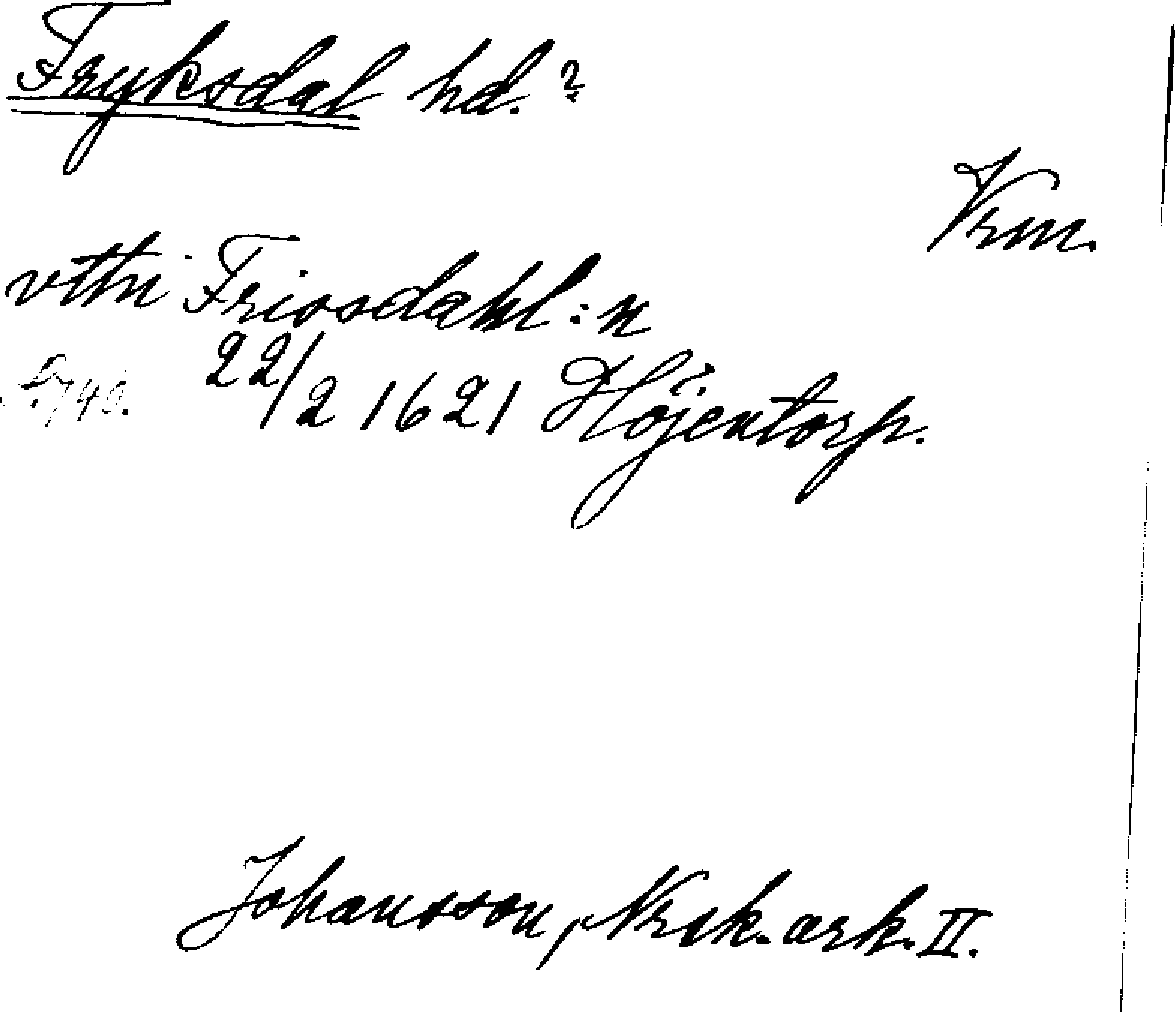 Fryksdal hd.?
Vrm.
vthi Friossdahl:n
22/2 1621 Höjentorp.
Johansson, Nrsk. ark. II.